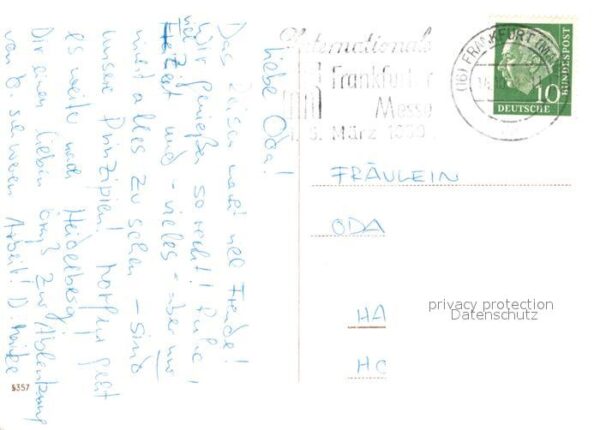 Liebe Oda!
Das Reisen macht viel Freude!
Wir genießen so recht! Ruhe,
viel
Zeit und - vieles - aber nur
nicht alles zu sehen - sind
unsere Prinzipien! Morgen geht
es weiter nach Heidelberg.
Dir einen lieben Gruß zur Ablenkung
von d. schweren Arbeit! D.
Internationale
Frankfurter
Messe
5. März
(16) FRANKFURT (MAIN)
10
DEUTSCHE
BUNDESPOST
FRÄULEIN
ODA
HA
HO
privacy protection
Datenschutz
§357